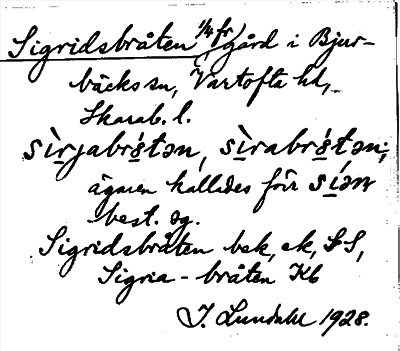 Sigridsbråten 1/4 fr, gård i Bjur-
bäcks sn, Vartofta hd,
Skarab. l.
sìrjabrǿtən, sìrabrǿtən;
ägaren kallades för síən
best. sg.
Sigridsbråten bsk, ek, GS,
Sigria-bråten Kb
I. Lundahl 1928.